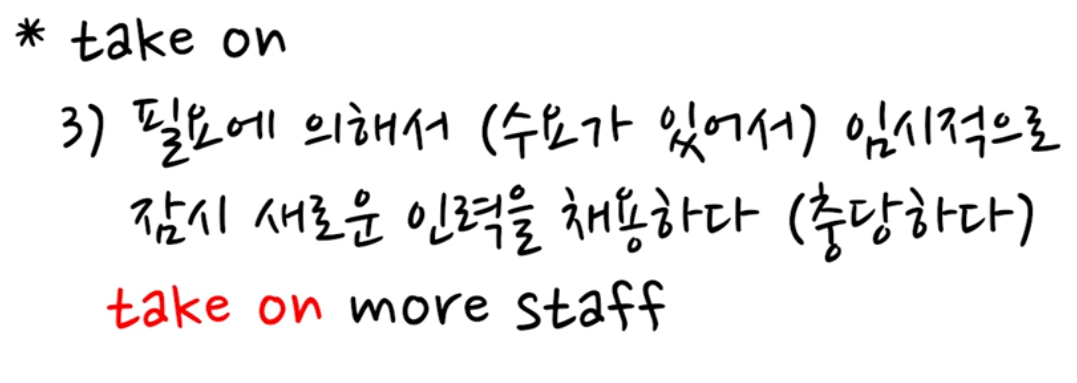 * take on
3) 필요에 의해서 (수요가 있어서) 임시적으로
잠시 새로운 인력을 채용하다 (충당하다)
take on more staff